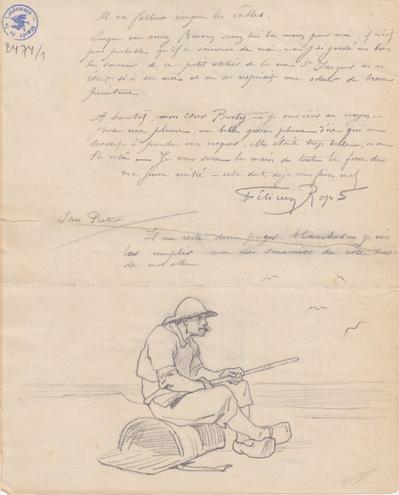 2474/1
Il va falloir rompre les câbles.
Lorsque vous verrez Bracquemond serrez lui la main pour moi, il n'est
pas probable qu'il se souvienne de moi, mais j'ai gardé un bon
souvenir de ce petit atelier de la rue St Jacques où on
était si à son aise et où on respirait une odeur de brave
peinture.
A bientôt, mon cher Burty, je
j'avais une plume, une belle grosse plume d'oie qui me
servait à prendre mes croquis, elle était trop belle, on me
l'a volée — Je vous serre la main de toute la force de
ma jeune amitié — cela doit déjà vous faire mal
Félicien Rops
Il me reste deux pages blanches je
les remplir avec des souvenirs de
de mon album.